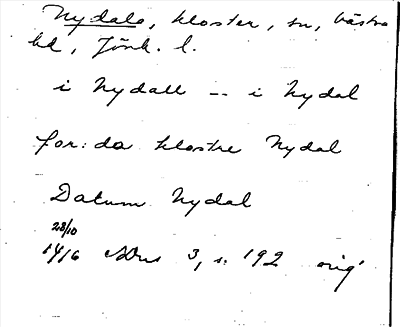 Nydala, kloster, sn, Västra
hd, Jönk. l.
i Nydall -- i Nydal
for:da klostre Nydal
Datum Nydal
28/10
1416 3, s. 192 orig